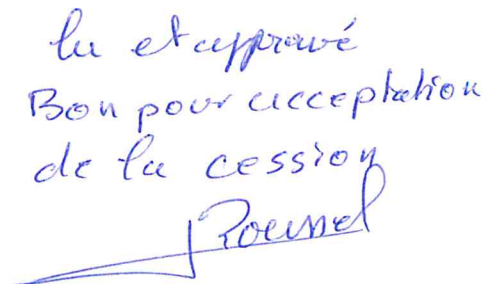 lu et approuvé
Bon pour acceptation
de la cession
Roussel